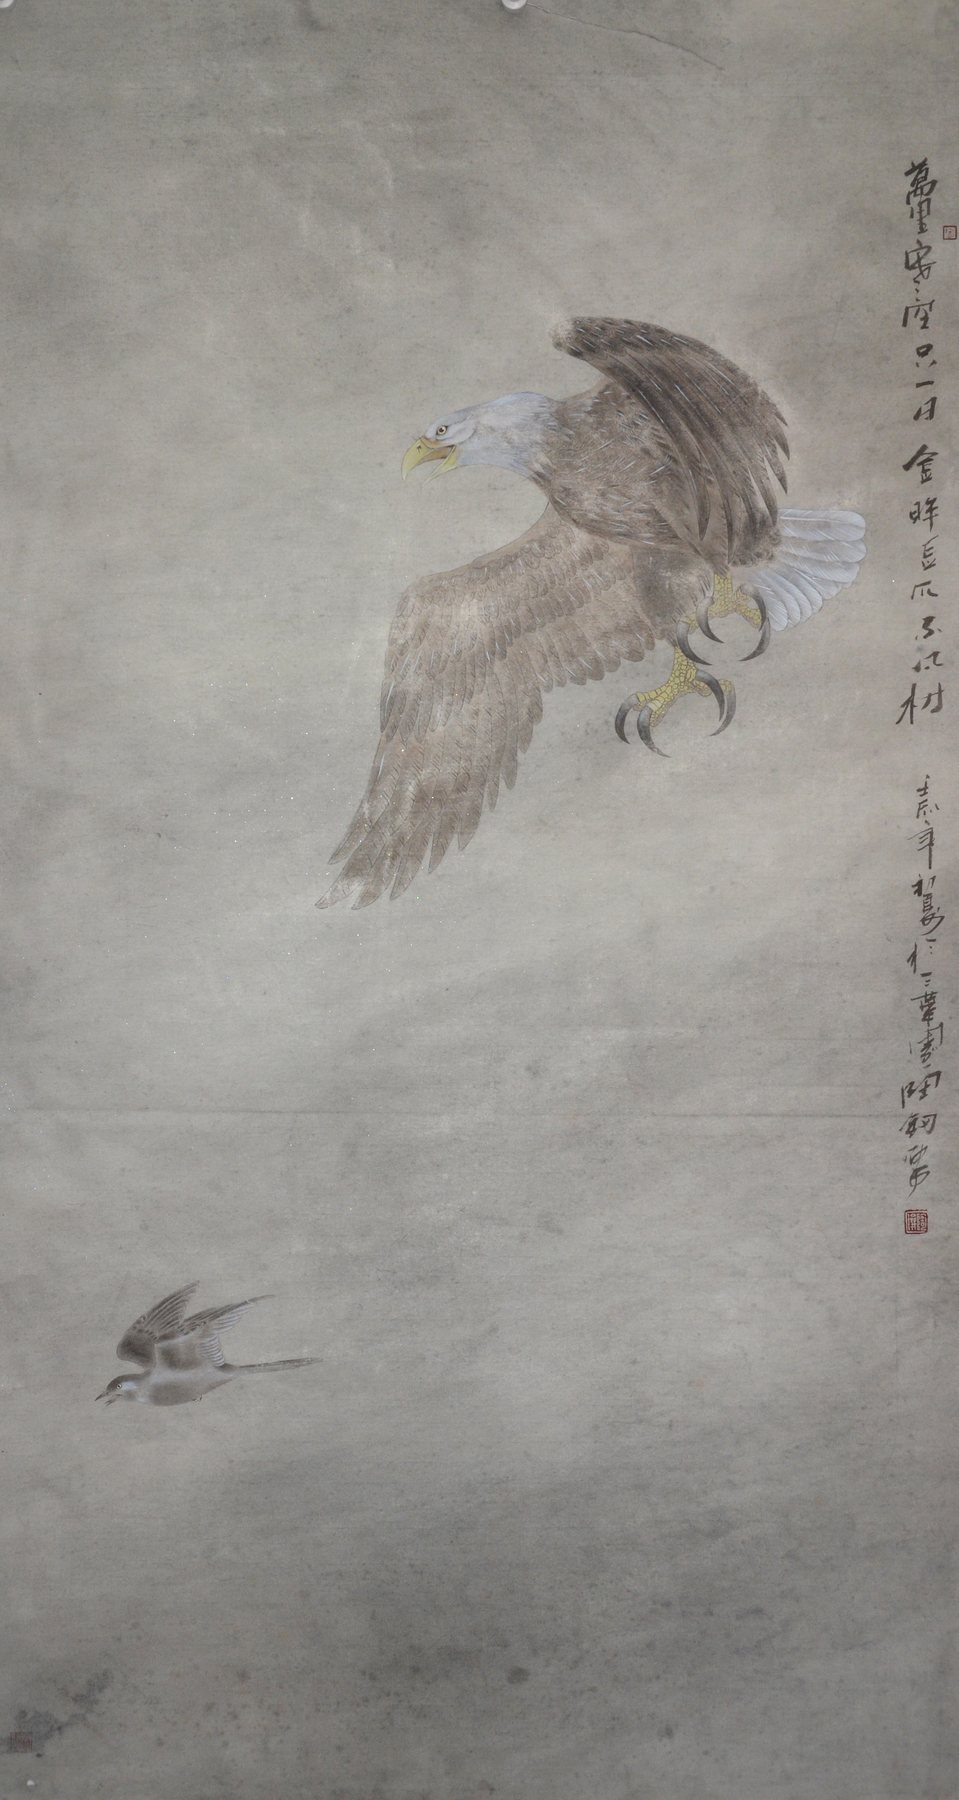 萬里寒空只一日 金眸玉爪不凡材 壬辰年初夏於三葉園陶韌